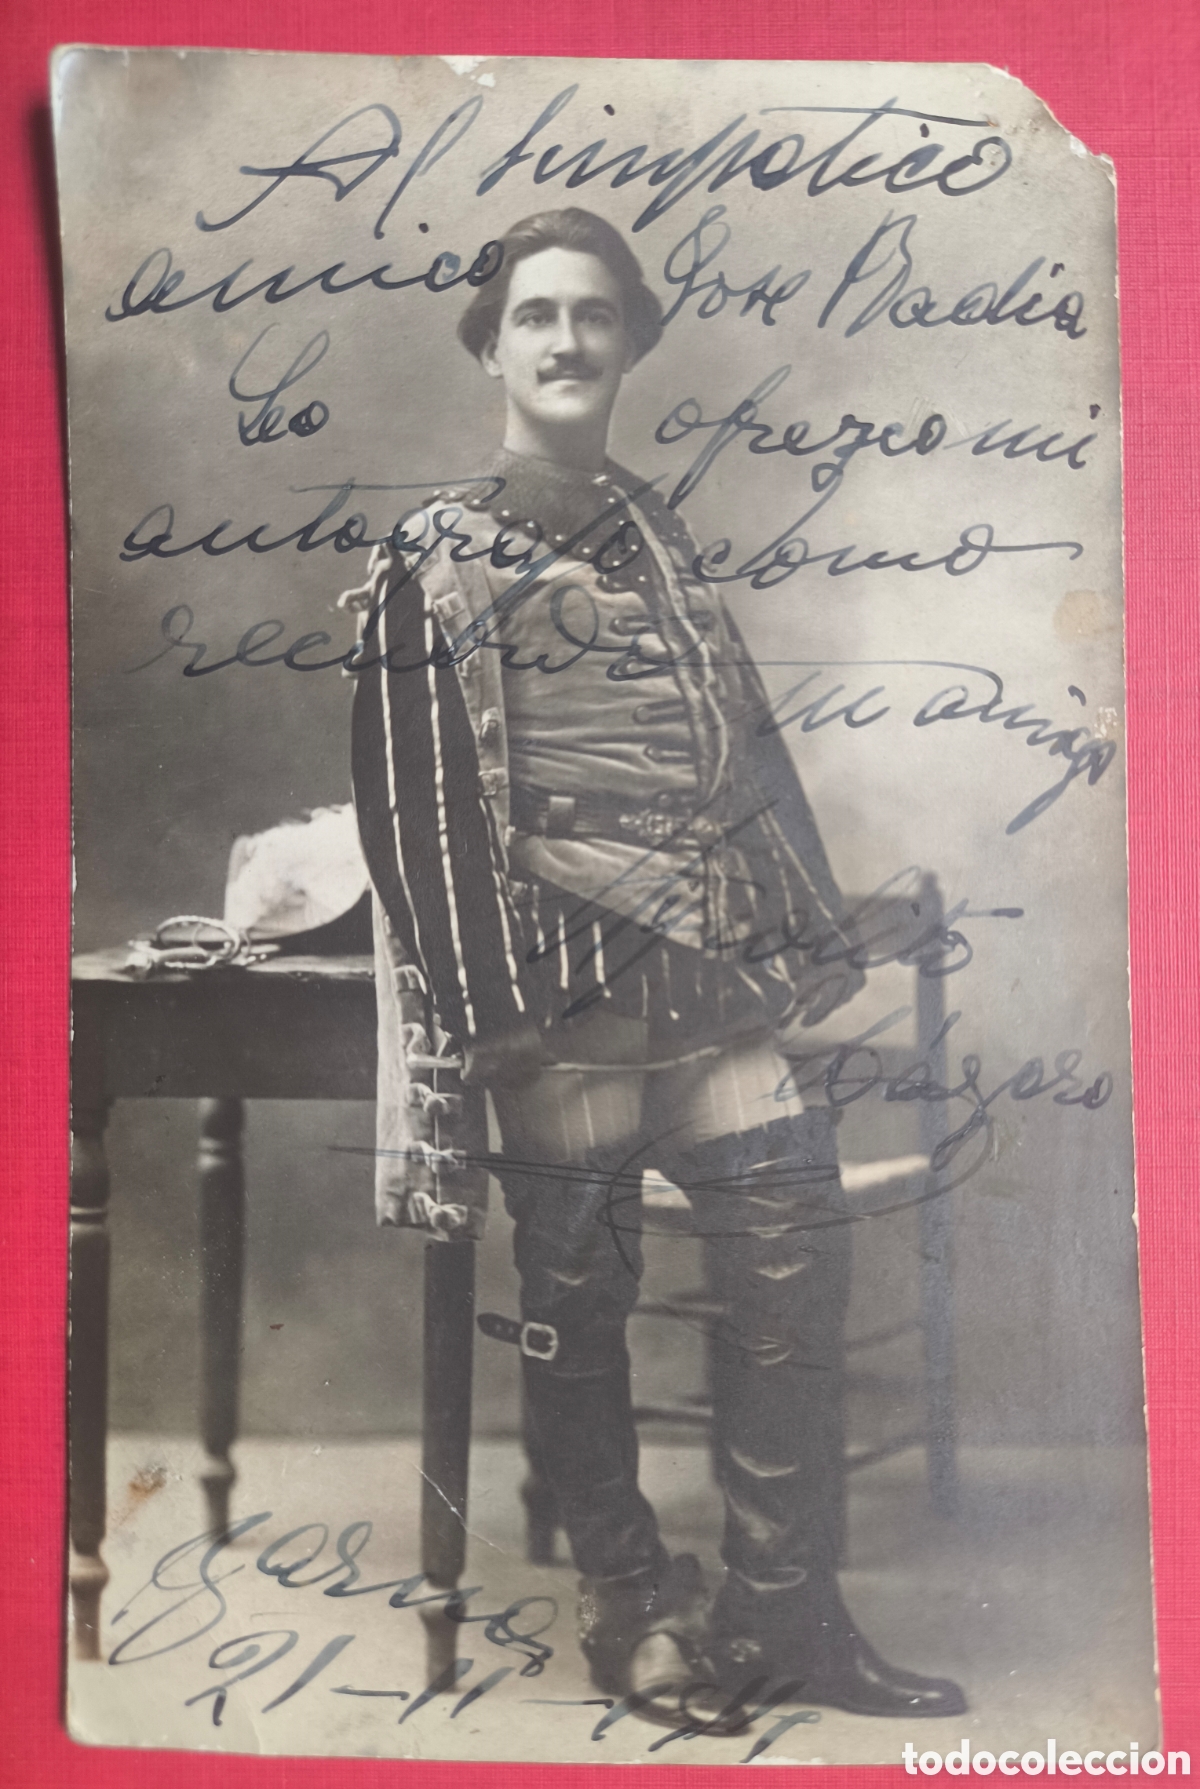 Al simpatico
amico Jose Badia
Leo ofrezco mi
autografo como
recuerdo
Hipolito
Lázaro
21-11-1914
todocoleccion